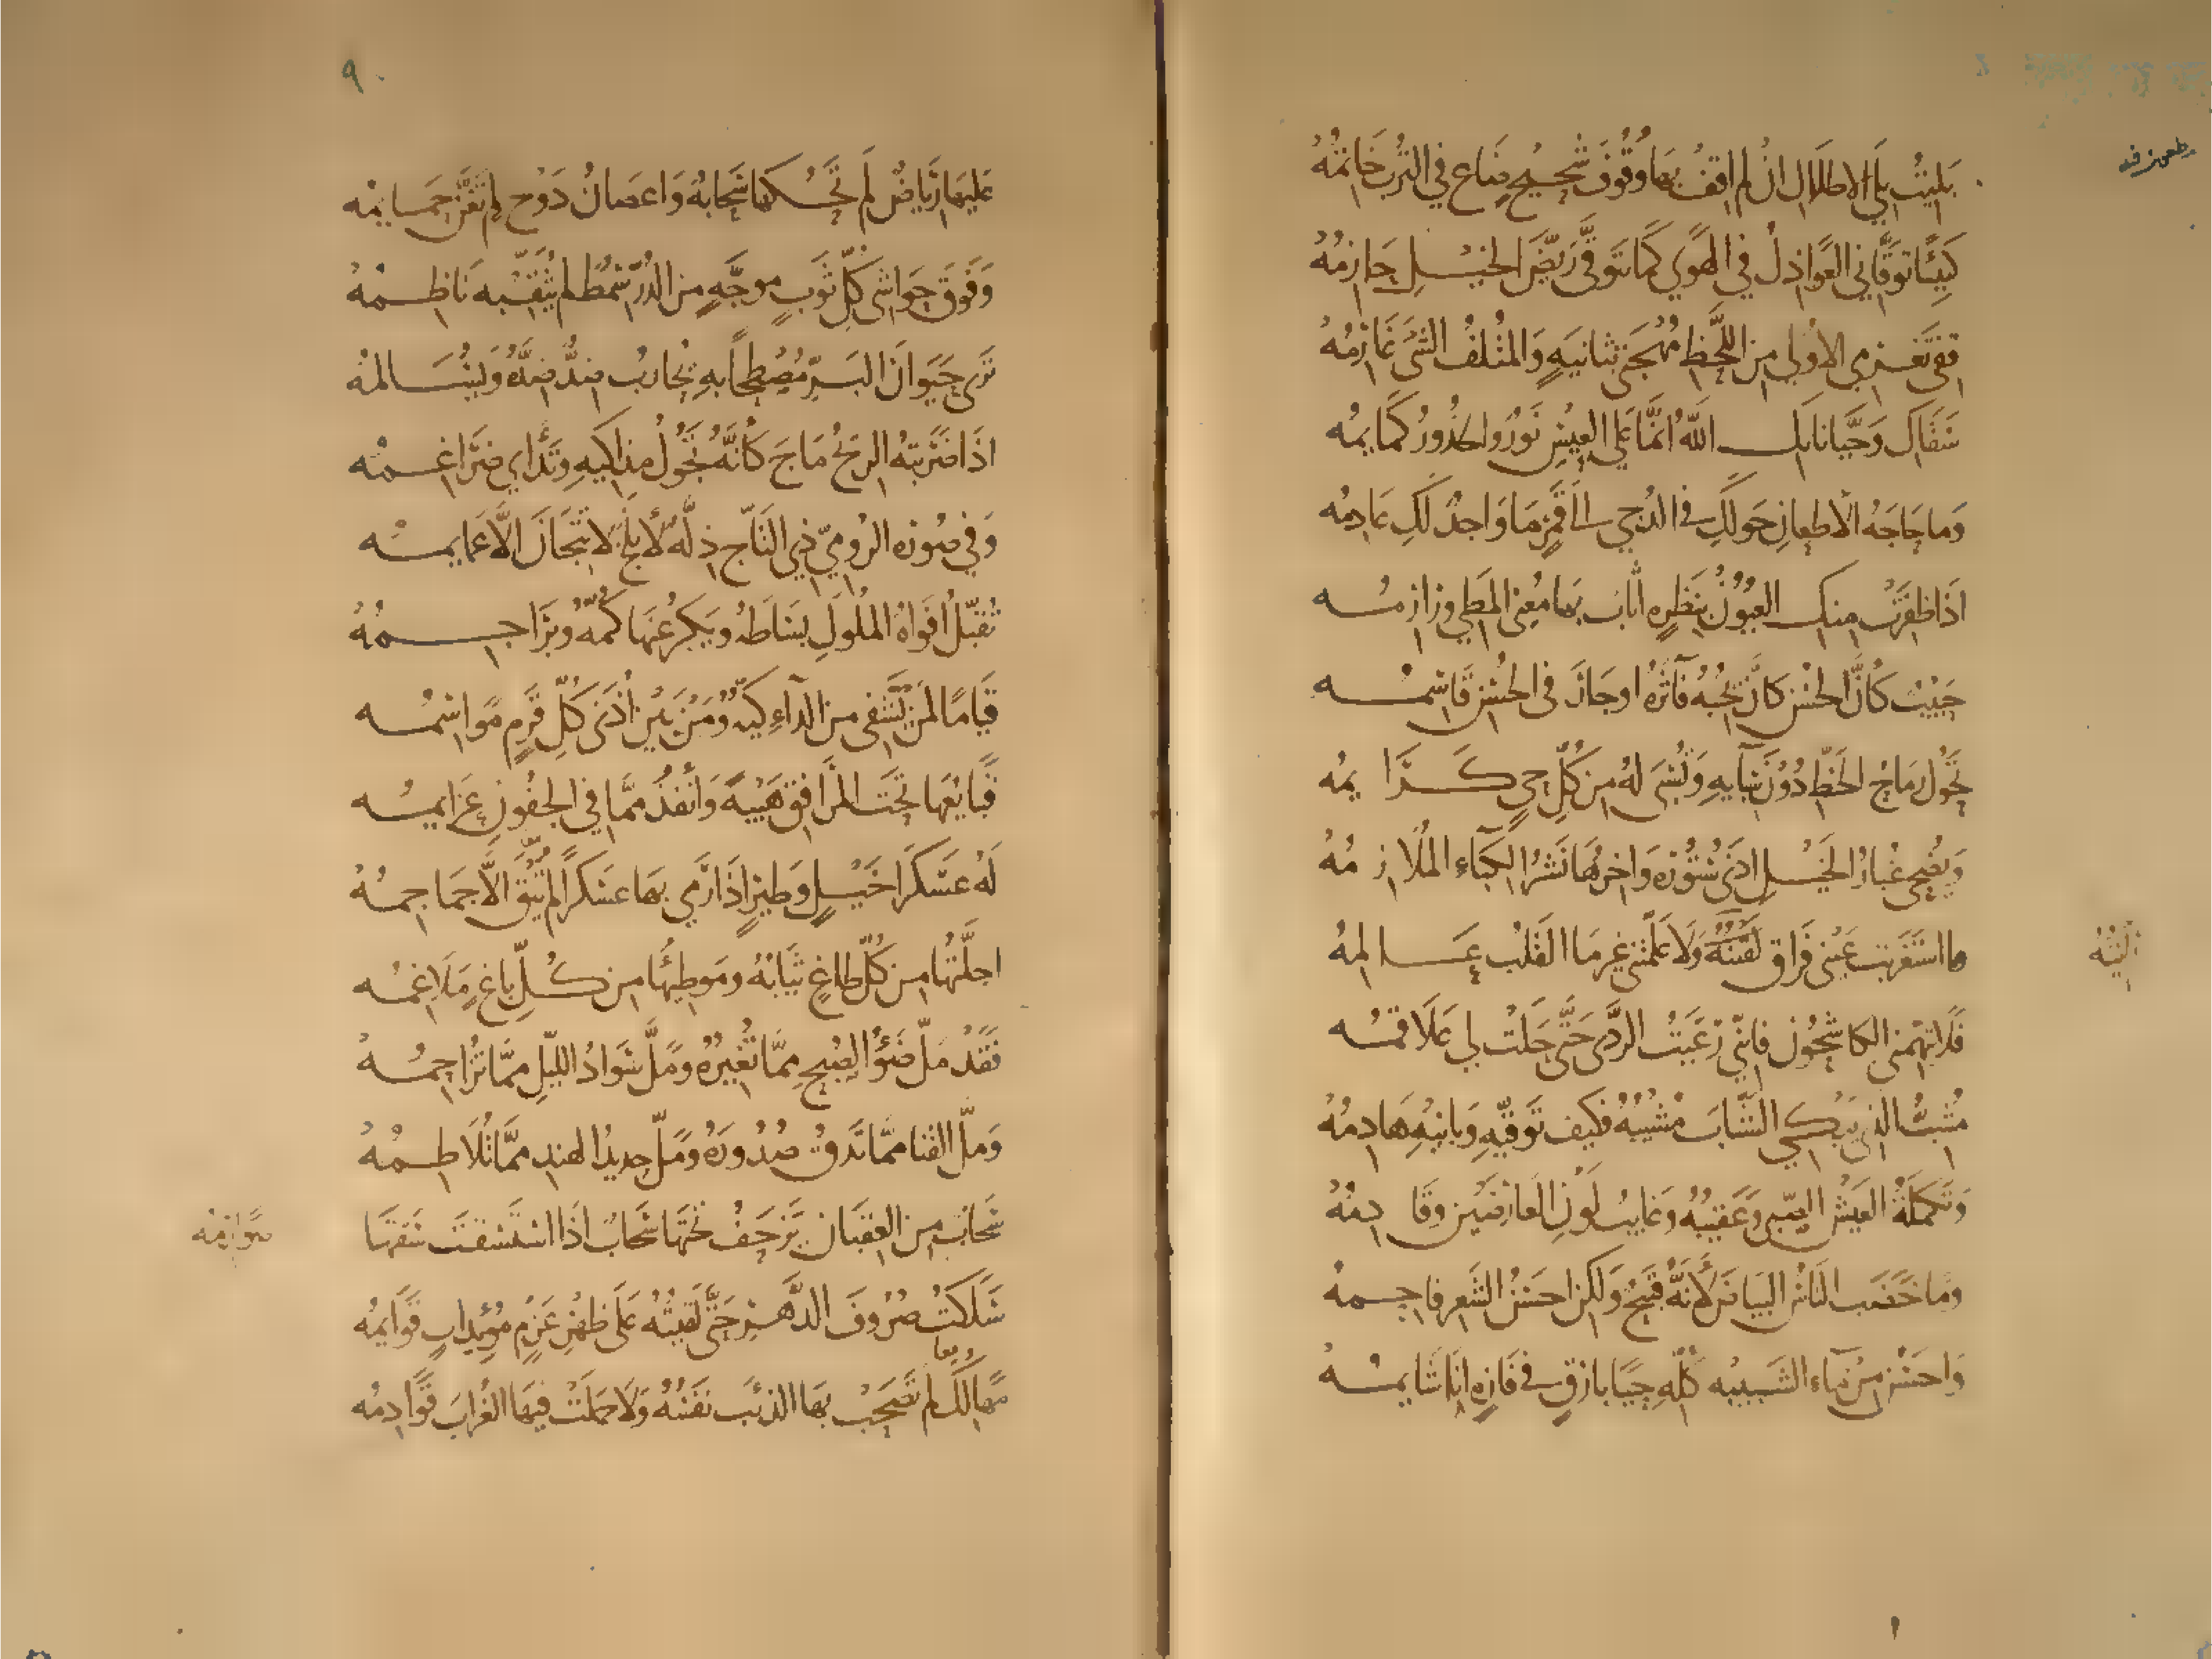 بَلِيتُ بِلَى الاطلالِ ان لم اقِفْ بها وُقُوفَ شَحِيحٍ ضاع في التُربِ خَاتمُهُ
كَئِيبًا تَوَقَّاني العَوَاذِلُ في الهَوَى كَمَا يَتَوَقَّى رَيِّضَ الخَيْلِ حَازِمُهُ
قِفي تَغْرَمِ الاولى مِنَ اللَّحْظِ مُهْجَتي بِثَانِيَةٍ وَالمُتْلِفُ الشَّيْءَ غَارِمُهُ
سَقَاكِ وَحَيَّانا بِكِ اللَّهُ انَّمَا عَلَى العِيسِ نَوْرٌ والخُدُورُ كَمَايِمُه
وَما حَاجَةُ الاظعانِ حَولَكِ في الدُجى الى قَمَرٍ مَا وَاجدٌ لَكِ عَادِمُه
اذَا ظَفِرَتْ مِنكِ العُيُونُ بِنَظرةٍ اثَابَ بهَا مُعْيي المَطِيِّ ورَازِمُه
حَبِيبٌ كَأَنَّ الحُسْنَ كَانَ يُحِبُّهُ فَآثَرَهُ او جَارَ في الحُسْنِ قَاسِمُه
تَحُولُ رِمَاحُ الخَطِّ دُوْنَ سِبَآيِهِ وَتُسْبَى لهُ مِن كُلِّ حيٍّ كَرَايمُه
وَيُضْحي غُبَارُ الخَيْلِ ادْنَى سُتُورِه وَاخِرُهَا نَشْرُ الكِبَاءِ المُلَازِمُهُ
ما استَغْرَبت عَيْنِي فِرَاقًا لَقِيتُهُ وَلَا عَلَّمَتْنِي غيرَ مَا القَلْبُ عَالِمُهُ
فَلَا يَتَّهِمْني الكَاشِحُونَ فانّي رَعَيتُ الرَّدى حَتَّى حَلَتْ لي عَلَاقِمُه
مُشِبُّ الذي يَبْكي الشَّبَابَ مُشِيبُهُ فكَيفَ تَوَقِّيهِ وَبَانِيهِ هَادِمُهُ
وَتَكْمِلَةُ العَيْشِ الصِّبَى وَعَقِيبُهُ وَغَايبُ لَوْنِ العَارِضَيْنِ وقَادِمُهُ
وَما خَضَبَ النَاسُ البَيَاضَ لأَنَّهُ قَبِيحٌ وَلكِن احسَنُ الشَّعرِ فاحِمهُ
وَاحسَنُ مِنْ مَآءِ الشَّبيبةِ كُلِّهِ حَيَا بَارِقٍ في فَازةٍ انَا شَايِمُهُ
الثنيه
٩٠
عَلَيهَا رِيَاضٌ لَم تَحُكْهَا سَحَابةٌ وَاغصَانُ دَوْحٍ لم تَغَنَّ حَمَايمُه
وَفَوْقَ حَوَاشي كُلِّ ثَوْبٍ موَجَّهٍ منَ الدُّرِّ سِمْطٌ لم يُثَقِّبْه نَاظِمُهُ
تَرَى حَيَوَانَ البَرِّ مُصْطَلِحًا بهِ يُحَارِبُ ضِدٌّ ضِدَّهُ وَيُسَالمُهُ
اذَا ضَرَبَتْهُ الريحُ مَاجَ كَأَنَّهُ تَجُولُ مذاكِيهِ وَتَدْأى ضَرَاغِمُه
وَفي صُورَةِ الرُوميِّ ذي التَّاجِ ذِلَّةٌ لأَبْلَجَ لَا تِيجَانَ الَّا عَمَايمُه
تُقَبِّلُ افوَاهُ المُلُوكِ بسَاطَهُ ويَكبُرُ عَنهَا كُمُّهُ وبَرَاجِمُهُ
قِيَامًا لمَنْ يَشْفي مِنَ الدَآءِ كَيُّهُ وَمَنْ بَيْنَ أُذْنَيْ كُلِّ قَرْمٍ مَوَاسِمُه
قَبَايعُهَا تَحْتَ المَرَافِقِ هَيْبَةً وَأَنْفَذُ ممَّا في الجُفُونِ عَزَايمُه
لَهُ عَسْكَرَا خَيْلٍ وَطَيرٍ اذَا رَمَى بهَا عَسْكَرًا لم يَبْقَ الَّا جَمَاجمُهُ
اجِلَّتُهَا مِن كُلِّ طَاغٍ ثِيَابُهُ ومَوطِئُها مِن كُلِّ بَاغٍ مَلَاغِمُه
فَقَدْ مَلَّ ضَوْءُ الصُبحِ ممَّا تُغِيرُهُ ومَلَّ سَوَادُ اللَيلِ ممَّا تُزَاحِمُهُ
وَمَلَّ القَنا ممَّا تَدقُّ صُدُورَهُ وَمَلَّ حديدُ الهندِ ممَّا تُلَاطِمُهُ
سَحَابٌ مِنَ العِقبَانِ يَزْحَفُ تَحْتَهَا سَحَابٌ اذَا استَسْقَتْ سَقَتهَا
صوارمه
سَلَكتُ صُرُوفَ الدَّهرِ حَتَّى لَقِيتُهُ عَلَى ظَهْرِ عَزْمٍ مُؤيَداتٍ قَوَايمُه
مَهَالِكَ لم تَصْحَبْ بهَا الذئبَ نَفسُهُ وَلَا حَمَلَتْ فيهَا الغُرابَ قَوَادِمُه